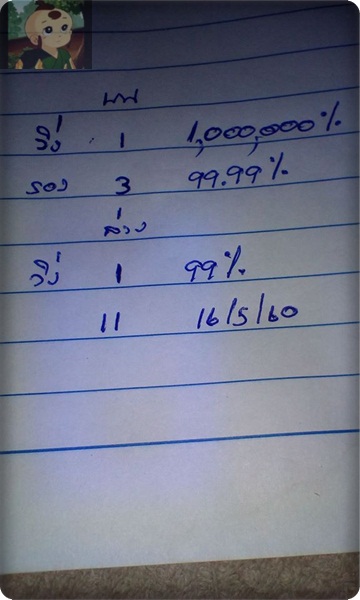 บน
วิ่ง 1 1,000,000%
รอง 3 99.99%
ล่าง
วิ่ง 1 99%
11 16/5/60